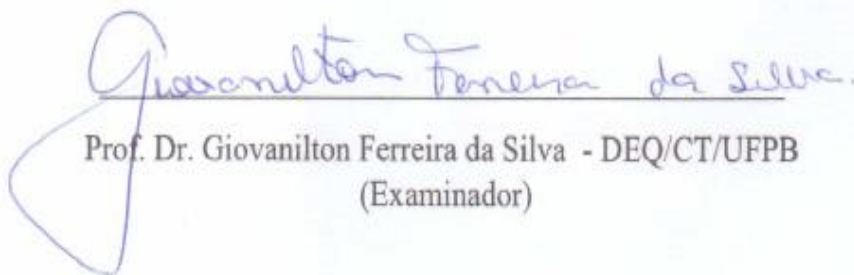 Giovanilton Ferreira da Silva.
Prof. Dr. Giovanilton Ferreira da Silva - DEQ/CT/UFPB
(Examinador)